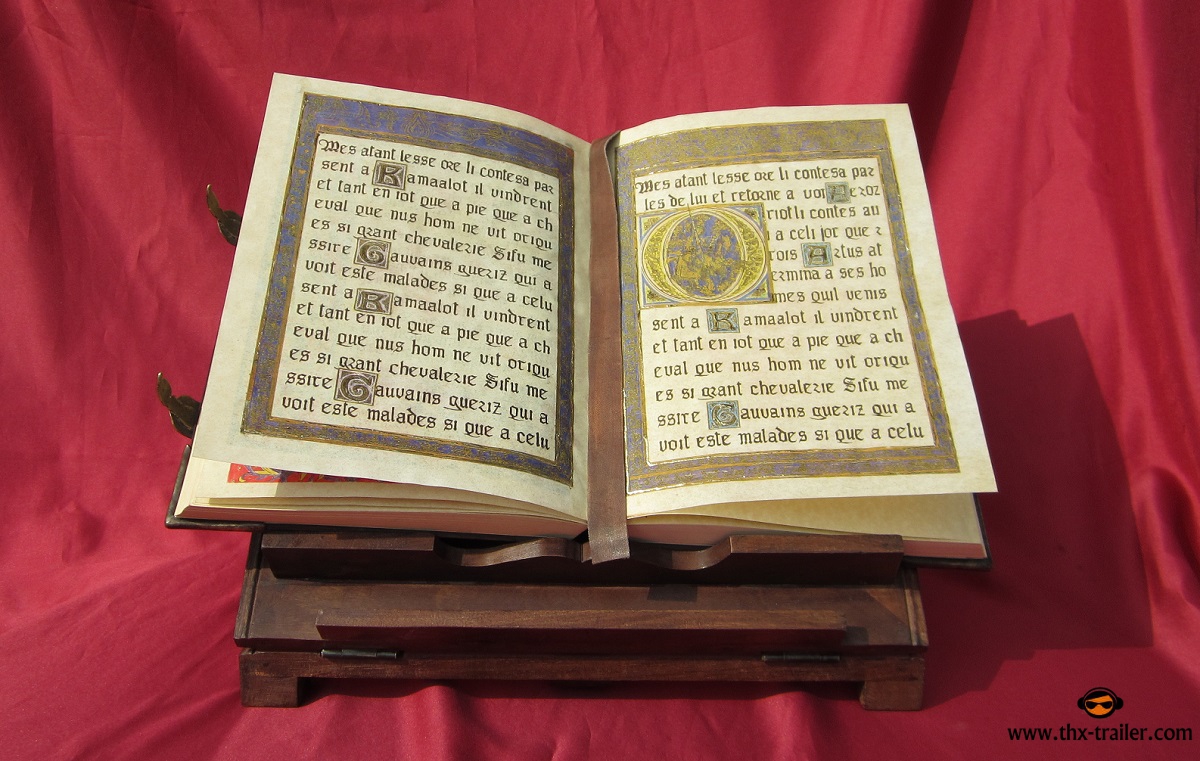 Mes atant lesse ore li contesa par
sent a Kamaalot il vindrent
et tant en iot que a pie que a ch
eval que nus hom ne vit oriqu
es si grant chevalerie Sifu me
ssire Gauvains queriz qui a
voit este malades si que a celu
sent a Kamaalot il vindrent
et tant en iot que a pie que a ch
eval que nus hom ne vit oriqu
es si grant chevalerie Sifu me
ssire Gauvains queriz qui a
voit este malades si que a celu
Mes atant lesse ore li contesa par
les de lui et retorne a voi Peroz
Oriotli contes au
a celi jor que
rois Artus at
crmina a ses ho
mes quil venis
sent a Kamaalot il vindrent
et tant en iot que a pie que a ch
eval que nus hom ne vit oriqu
es si grant chevalerie Sifu me
ssire Gauvains queriz qui a
voit este malades si que a celu
www.thx-trailer.com